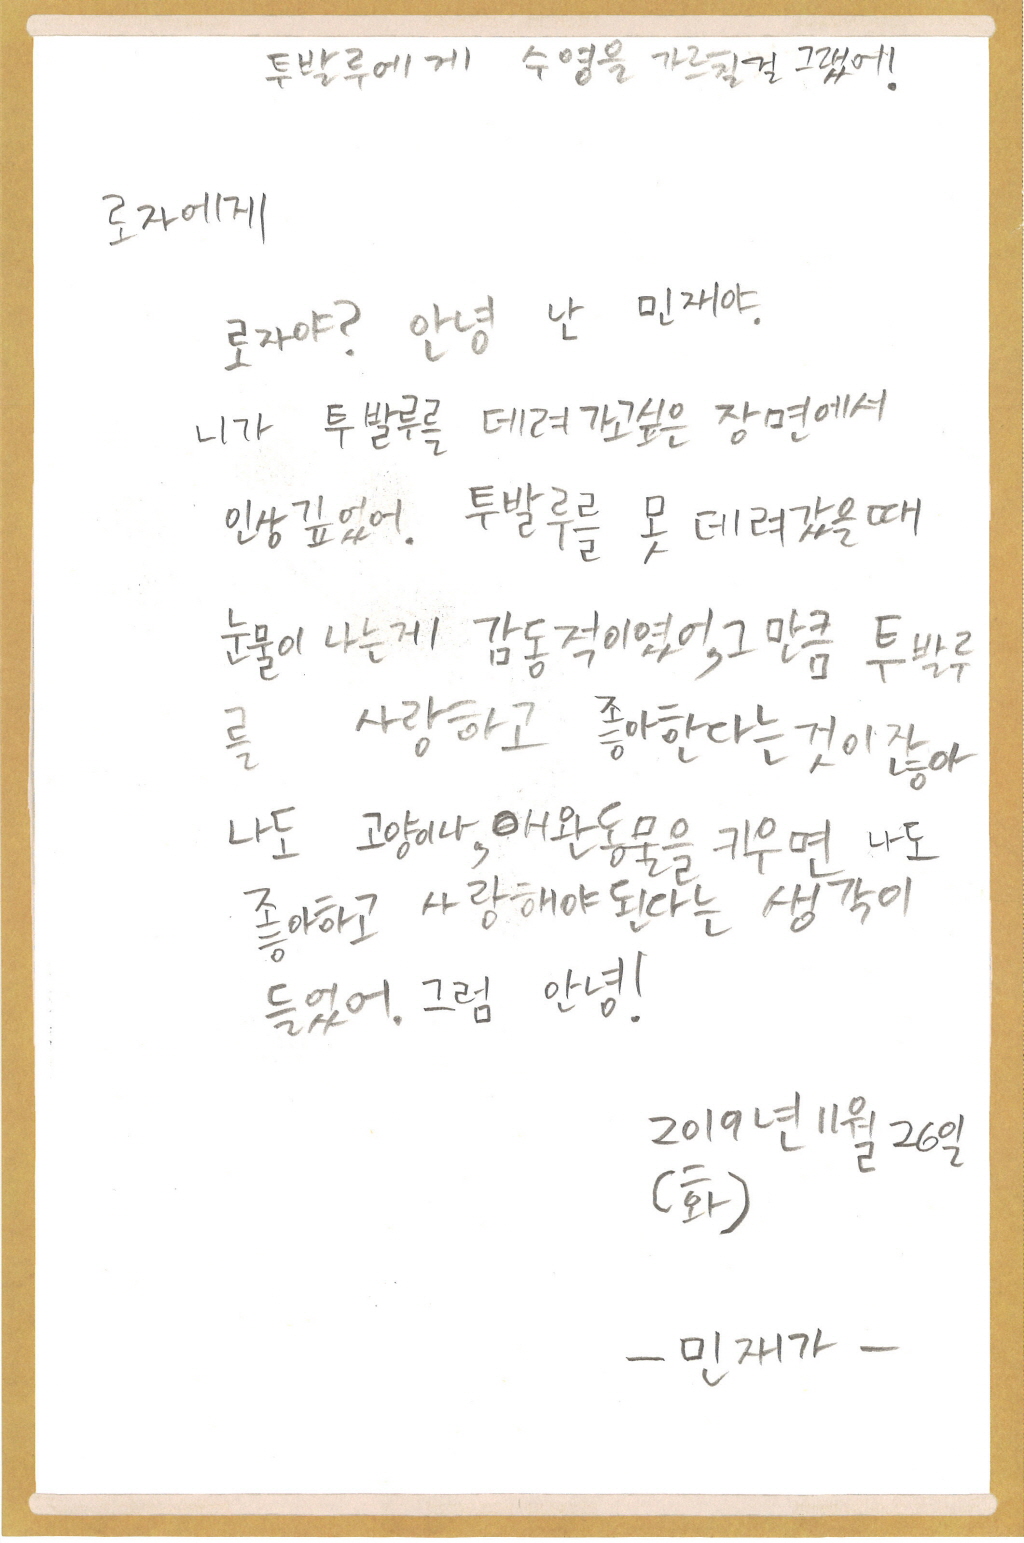 투발루에게 수영을 가르칠걸 그랬어!
로자에게
로자야? 안녕 난 민재야.
니가 투발루를 데려가고싶은 장면에서
인상깊었어. 투발루를 못 데려갔을때
눈물이 나는게 감동적이였어, 그만큼 투발루
를 사랑하고 좋아한다는것이잖아
나도 고양이나, 애완동물을 키우면 나도
좋아하고 사랑해야된다는 생각이
들었어. 그럼 안녕!
2019년 11월 26일
(화)
- 민재가 -